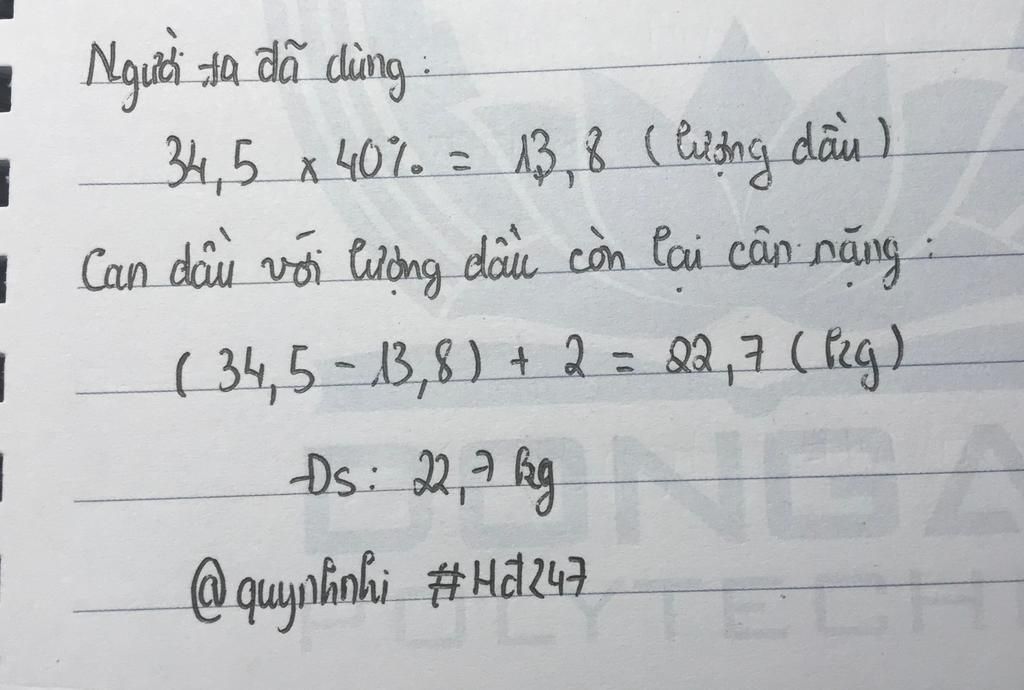 Người ta đã dùng:
34,5 x 40% = 13,8 (lượng dầu)
Can dầu với lượng dầu còn lại cân nặng:
(34,5 - 13,8) + 2 = 22,7 (kg)
Đs: 22,7 kg
@quynhnhi #Hđ247
DONGA
POLYTECH